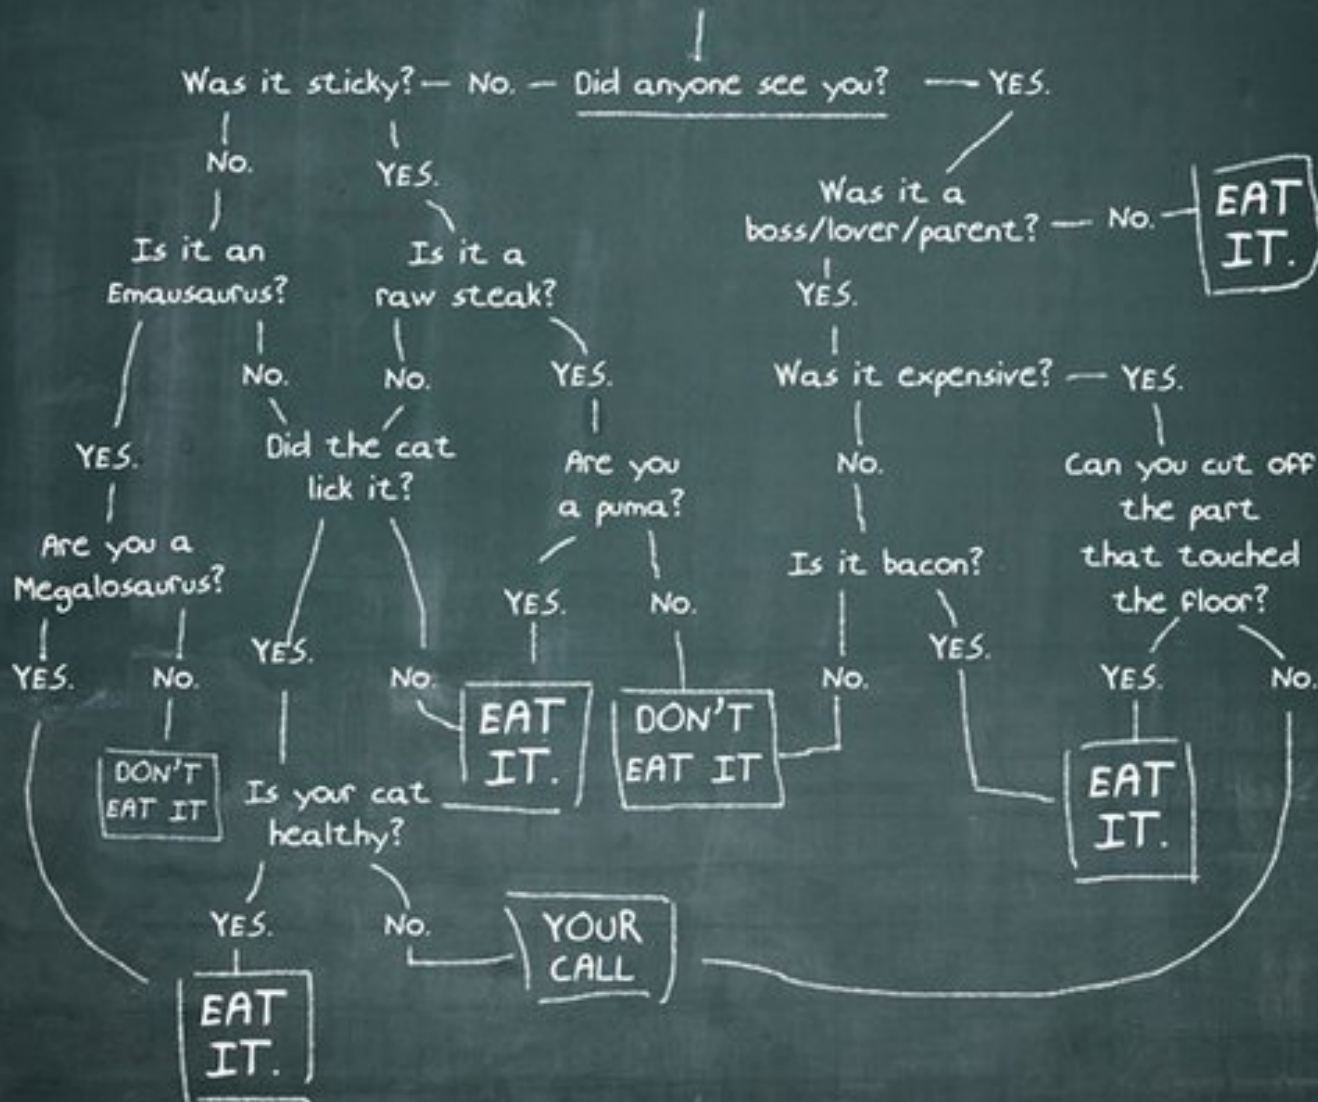 Was it sticky? — No. — Did anyone see you? — YES.
No.
YES.
Was it a
boss/lover/parent? — No.
EAT
IT.
Is it an
Emausaurus?
Is it a
raw steak?
YES.
No.
No.
YES.
Was it expensive? — YES.
YES.
Did the cat
lick it?
Are you
a puma?
No.
Can you cut off
the part
that touched
the floor?
Are you a
Megalosaurus?
Is it bacon?
YES.
No.
YES.
No.
YES.
No.
No.
YES.
YES.
No.
EAT
IT.
DON'T
EAT IT
DON'T
EAT IT
Is your cat
healthy?
EAT
IT.
YES.
No.
YOUR
CALL
EAT
IT.